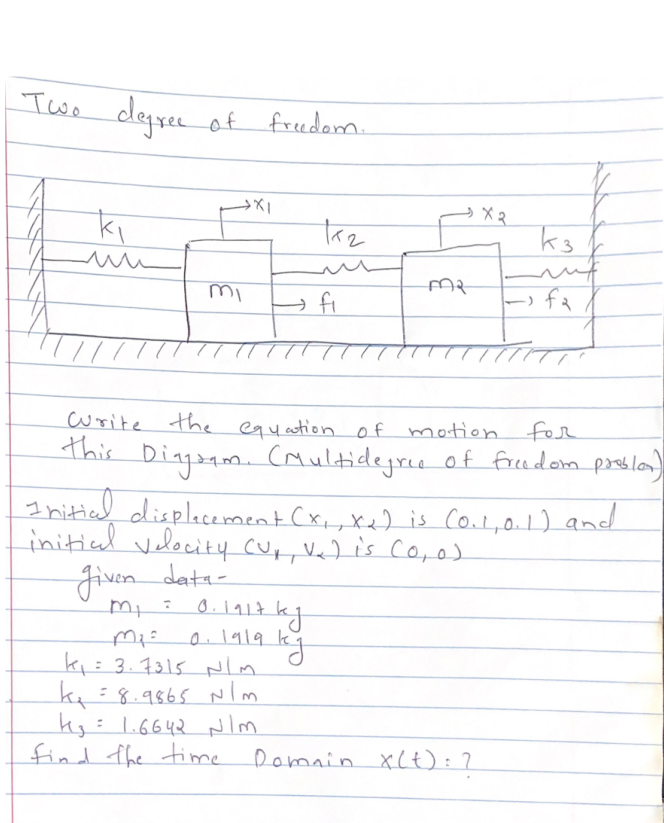 Two degree of freedom.
x1 x2
k1 k2 k3
m1 m2
f1 f2
Write the equation of motion for
this Diagram. (Multidegree of freedom problem)
Initial displacement (x1, x2) is (0.1, 0.1) and
initial velocity (v1, v2) is (0, 0)
given data-
m1 = 0.1917 kg
m2 = 0.1919 kg
k1 = 3.7315 N/m
k2 = 8.9865 N/m
k3 = 1.6642 N/m
find the time Domain x(t) = ?